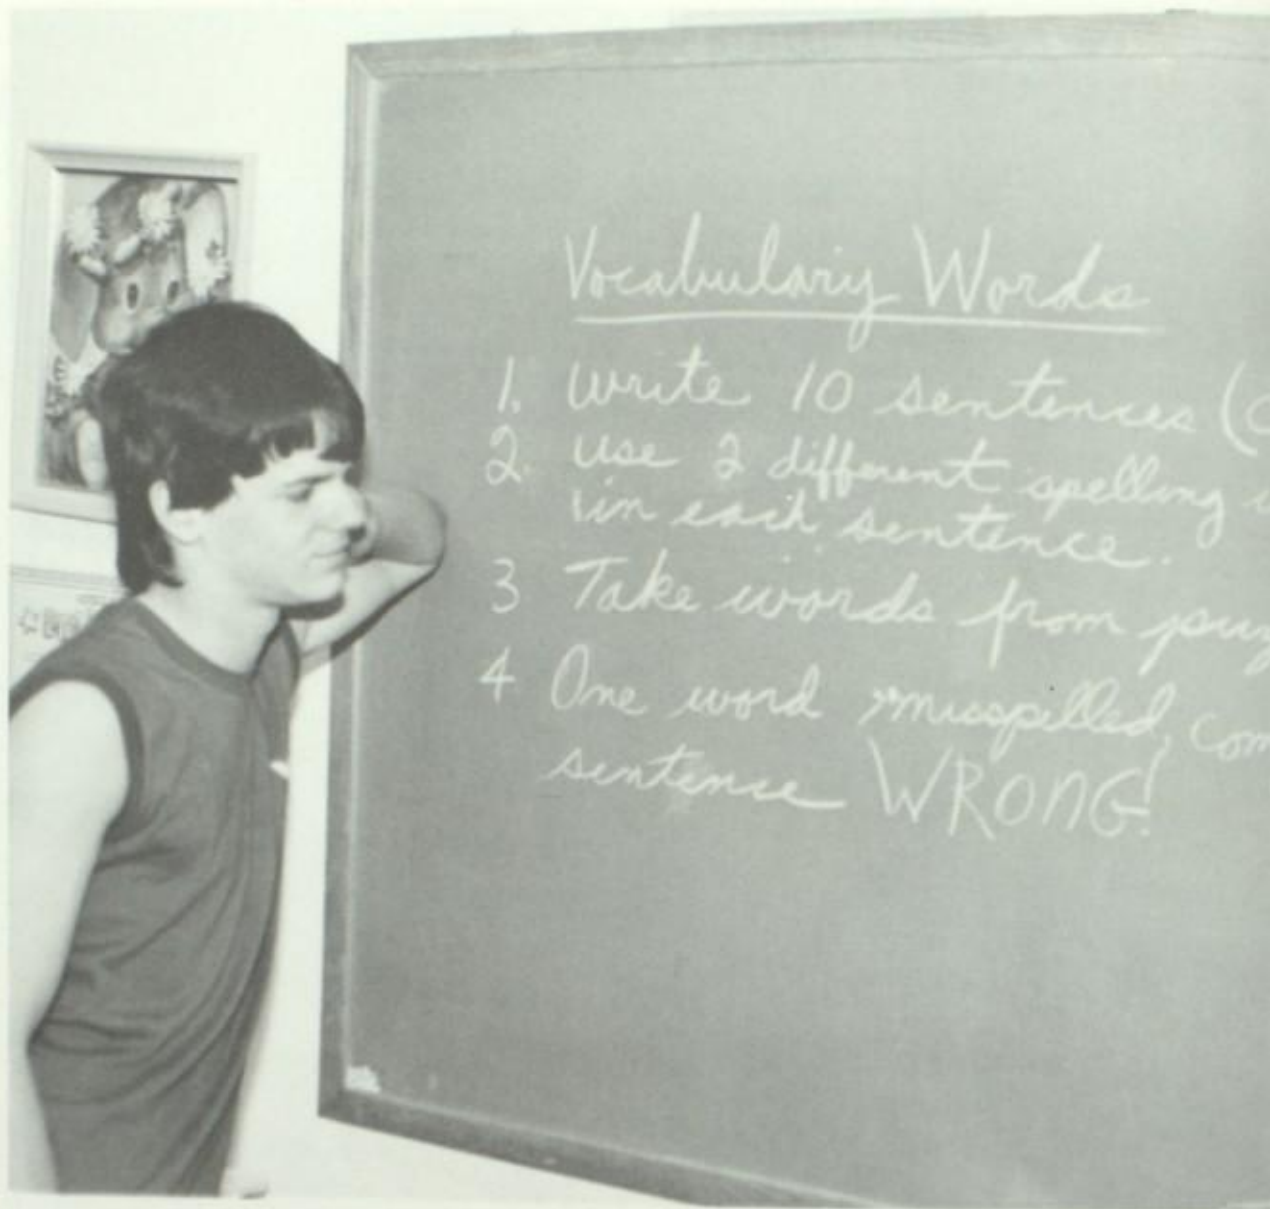 Vocabulary Words
1. Write 10 sentences (
2. Use 2 different spelling
in each sentence.
3 Take words from
4 One word misspelled,
sentence WRONG!